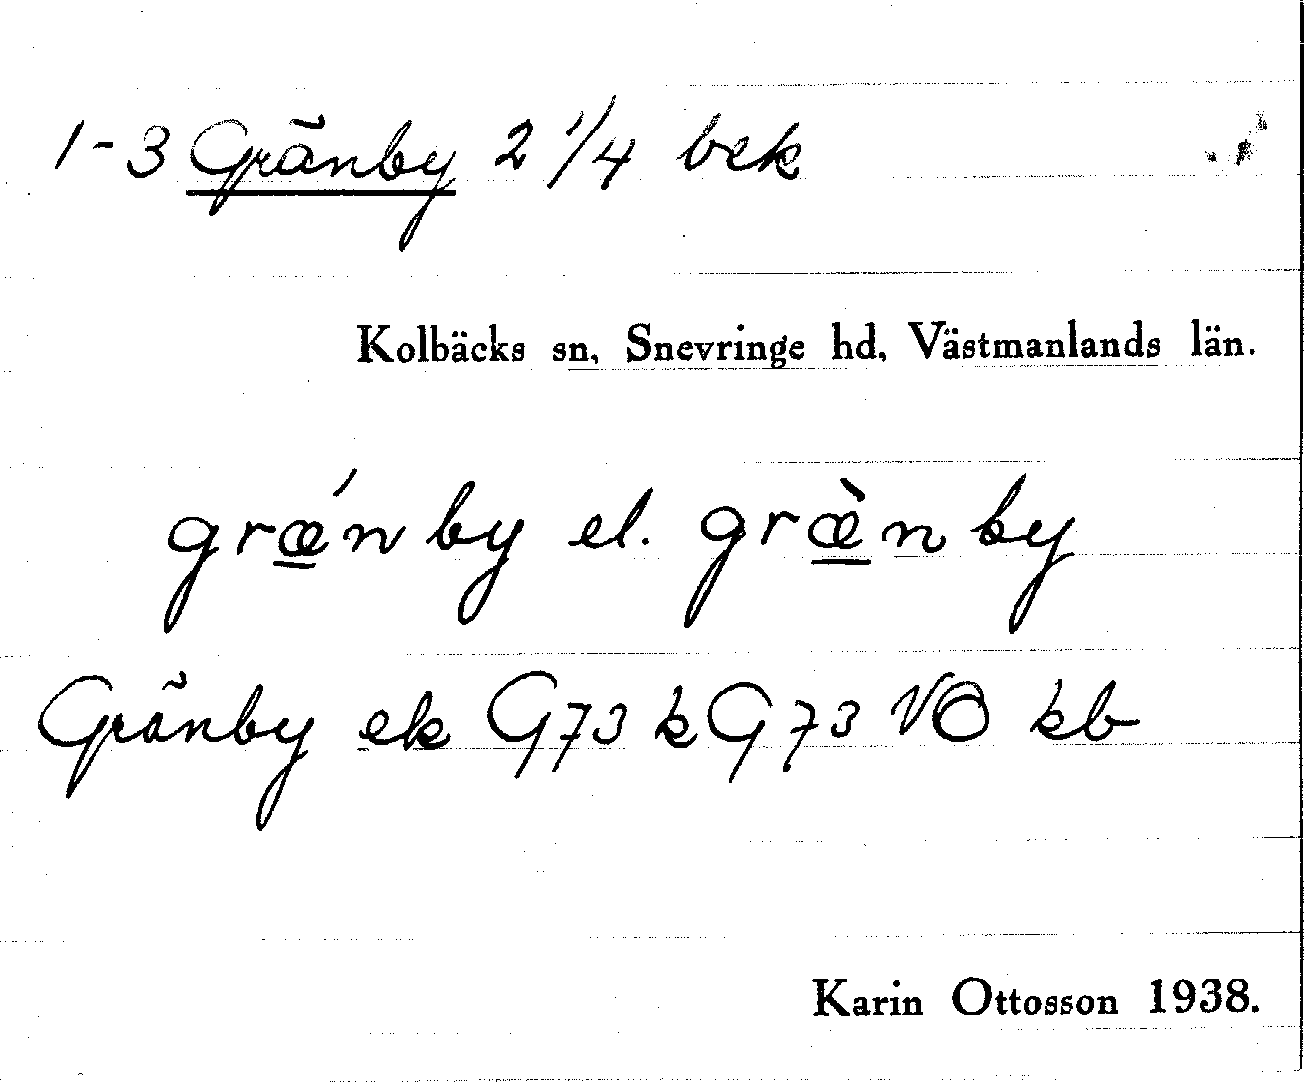 1-3 Gränby 2 1/4 bek
Kolbäcks sn, Snevringe hd, Västmanlands län.
grǽnby el. græ̀nby
Gränby ek G73 kG73 VO kb
Karin Ottosson 1938.